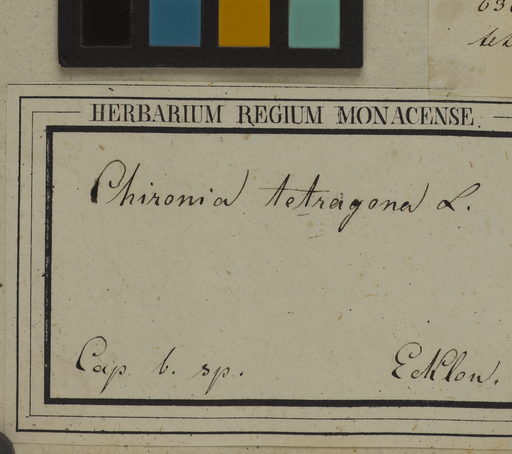 HERBARIUM REGIUM MONACENSE
Chironia tetragona L.
Cap. b. sp. Ecklon.